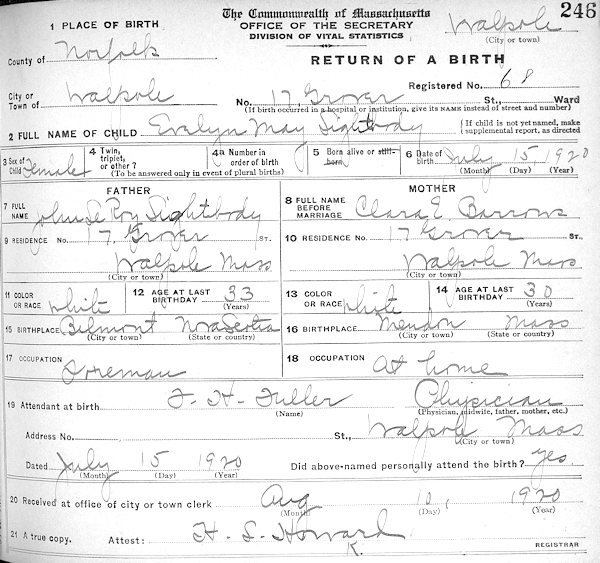 246
1 PLACE OF BIRTH The Commonwealth of Massachusetts Walpole
OFFICE OF THE SECRETARY (City or town)
DIVISION OF VITAL STATISTICS
County of Norfolk RETURN OF A BIRTH
Registered No. 68
City or Town of Walpole No. 17 Grover St., Ward
(If birth occurred in a hospital or institution, give its NAME instead of street and number)
2 FULL NAME OF CHILD Evelyn May Lightbody (If child is not yet named, make supplemental report, as directed
3 Sex of Child Female 4 Twin, triplet, or other? 4a Number in order of birth 5 Born alive or still-born 6 Date of birth July 15, 1920
(To be answered only in event of plural births) (Month) (Day) (Year)
FATHER MOTHER
7 FULL NAME John Le Roy Lightbody 8 FULL NAME BEFORE MARRIAGE Clara E. Barrows
9 RESIDENCE No. 17 Grover ST. 10 RESIDENCE No. 17 Grover ST.
Walpole Mass Walpole Mass
(City or town) (City or town)
11 COLOR OR RACE white 12 AGE AT LAST BIRTHDAY 33 (Years) 13 COLOR OR RACE white 14 AGE AT LAST BIRTHDAY 30 (Years)
15 BIRTHPLACE Nova Scotia 16 BIRTHPLACE Mendon Mass
(City or town) (State or country) (City or town) (State or country)
17 OCCUPATION Foreman 18 OCCUPATION At home
19 Attendant at birth F. H. Fuller Physician
(Name) (Physician, midwife, father, mother, etc.)
Address No. St., Walpole Mass
(City or town)
Dated July 15 1920 Did above-named personally attend the birth? yes
(Month) (Day) (Year)
20 Received at office of city or town clerk Aug 10, 1920
(Month) (Day) (Year)
21 A true copy. Attest: H. L. Howard
K. REGISTRAR